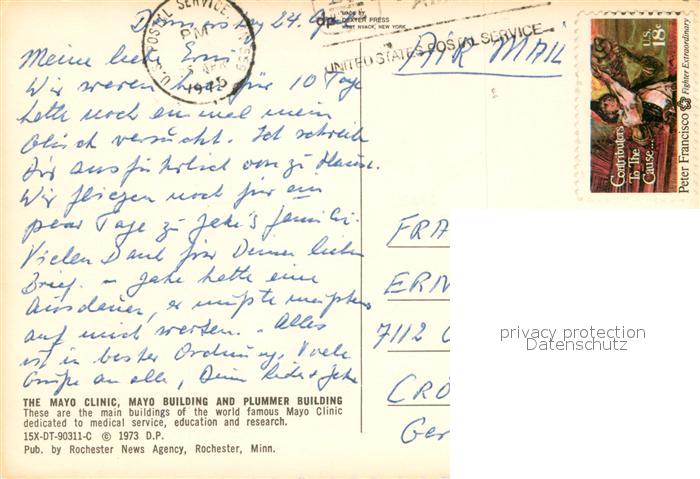 Donnerstag 24. Apr.
dp MADE BY
DEXTER PRESS
WEST NYACK, NEW YORK
U.S. POSTAL SERVICE
PM
1975
UNITED STATES POSTAL SERVICE
AIR MAIL
U.S. 18c
Contributors
To The
Cause...
Peter Francisco Fighter Extraordinary
Meine liebe
Wir waren hier für 10 Tage
hatte noch einmal mein
Glück versucht. Ich schreib
Dir ausführlich von zu Hause.
Wir fliegen noch für ein
paar Tage zu Jake's Familie.
Vielen Dank für Deinen lieben
Brief. Jake hatte eine
Ausdauer, er mußte meistens
auf mich warten. - Alles
ist in bester Ordnung, Viele
Grüße an alle, Deine Jake
FRA
ERN
7112
CRÖ
Ger
THE MAYO CLINIC, MAYO BUILDING AND PLUMMER BUILDING
These are the main buildings of the world famous Mayo Clinic
dedicated to medical service, education and research.
15X-DT-90311-C © 1973 D.P.
Pub. by Rochester News Agency, Rochester, Minn.
privacy protection
Datenschutz